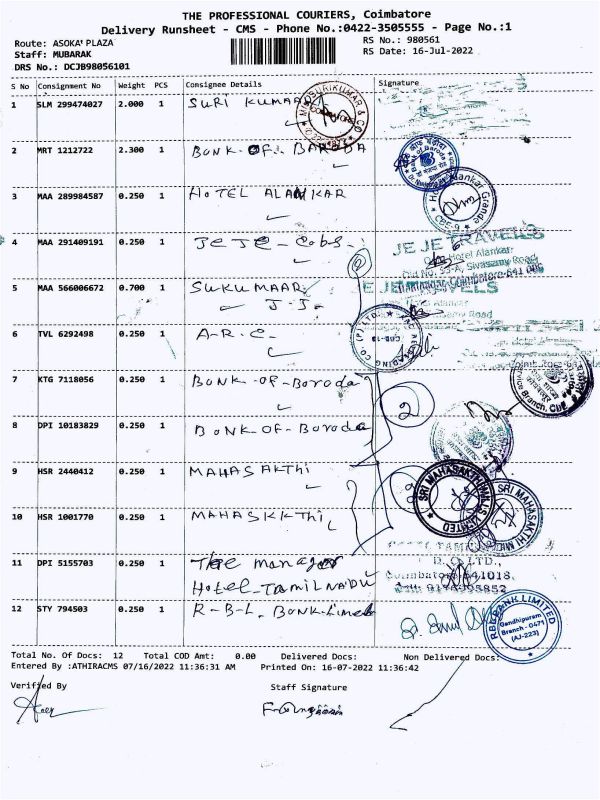 THE PROFESSIONAL COURIERS, Coimbatore
Delivery Runsheet - CMS - Phone No.:0422-3505555 - Page No.:1
Route: ASOKA' PLAZA
RS No.: 980561
Staff: MUBARAK
RS Date: 16-Jul-2022
DRS No.: DCJB98056101
S No Consignment No Weight PCS Consignee Details Signature
1 SLM 299474027 2.000 1 SURI KUMAAR
2 MRT 1212722 2.300 1 BONK-OF-BARODA
3 MAA 289984587 0.250 1 HOTEL ALANKAR
Hotel Alankar Grande
CBE-9
4 MAA 291409191 0.250 1 JEJE-Cobs
JE JE TRAVELS
Hotel Alankar
Old No. 93-A, Sivasamy Road
Ramnagar, Coimbatore-641 009
5 MAA 566006672 0.700 1 SUKUMAAR
J-J-
6 TVL 6292498 0.250 1 A-R-C-
7 KTG 7118056 0.250 1 BONK-OF-Boroda
2
8 DPI 10183829 0.250 1 BONK-OF-Boroda
9 HSR 2440412 0.250 1 MAHASAKTHI
SRI MAHASAKTHI MILLS LIMITED
10 HSR 1001770 0.250 1 MAHASKKTHI
SRI MAHASAKTHI
11 DPI 5155703 0.250 1 The manager
Hotel-TAMILNADU
Coimbatore-641018.
12 STY 794503 0.250 1 R-B-L- BONK-Limeb
RBL BANK LIMITED
Gandhipuram
Branch - 0471
(AJ-223)
Total No. Of Docs: 12 Total COD Amt: 0.00 Delivered Docs: Non Delivered Docs:
Entered By :ATHIRACMS 07/16/2022 11:36:31 AM Printed On: 16-07-2022 11:36:42
Verified By Staff Signature